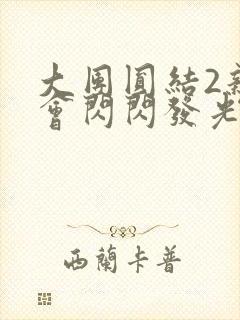 大團圓結2
會閃閃發光
西蘭卡普